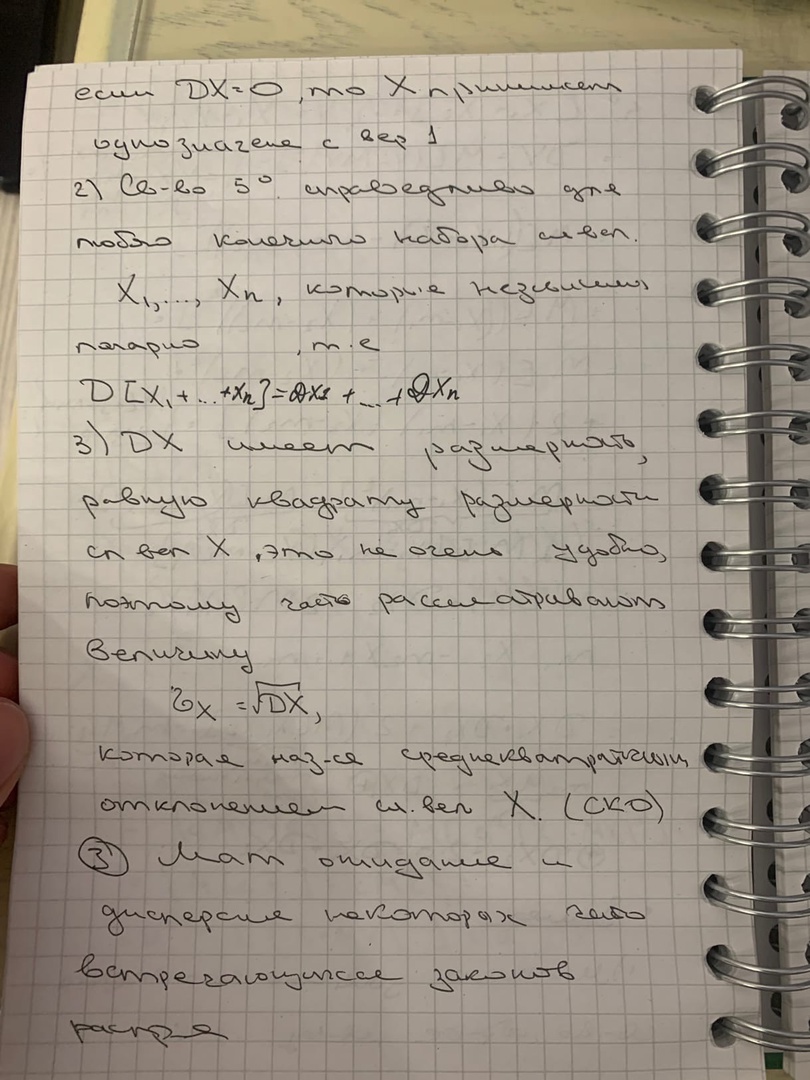 если DX=0, то X принимает
одно значение с вер 1
2) Св-во 5° справедливо для
любого конечного набора сл вел.
X₁,..., Xₙ, которые независимы
попарно , т.е
D[X₁+...+Xₙ]=DX₁+...+DXₙ
3) DX имеет размерность,
равную квадрату размерности
сл вел X, это не очень удобно,
поэтому часто рассматривают
величину
σ_X = √DX,
которая наз-ся среднеквадратичным
отклонением сл. вел X. (СКО)
③ Мат ожидание и
дисперсия некоторых часто
встречающихся законов
распр-я